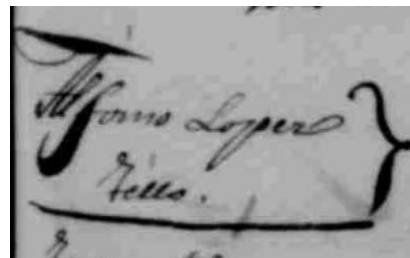 Alfonso Lopez
Tello.